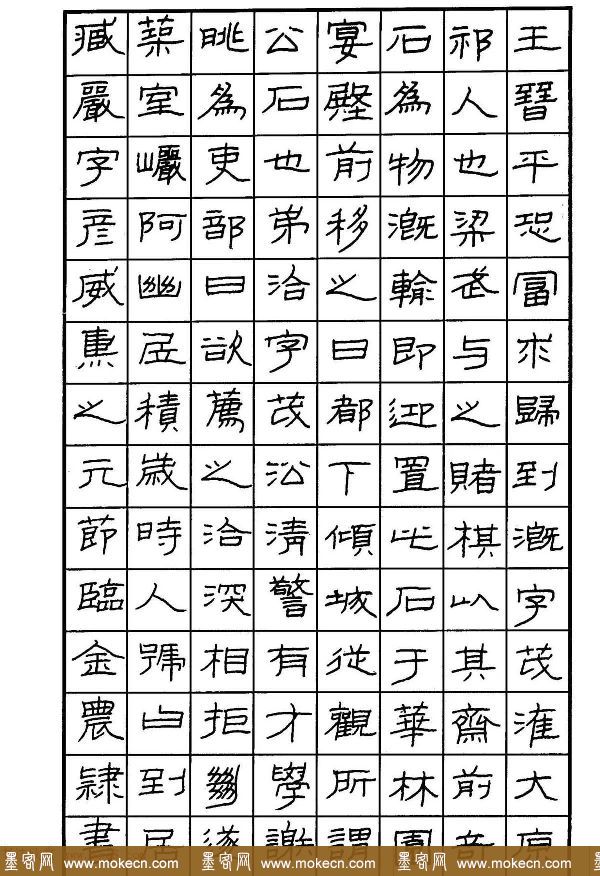 王晉平恐富求歸到溉字茂灌大原
祁人也梁武与之賭棋以其齋前奇
石為物溉輸即迎置此石于華林園
宴殿前移之日都下傾城從觀所謂
公石也弟洽字茂沿清警有才學謝
眺為吏部曰欲薦之洽深相拒絕遂
築室巗阿幽居積歲時人號曰到居
臧嚴字彥威燾之元節臨金農隸書
墨客网 www.mokecn.com 墨客网 www.mokecn.com 墨客网 www.mokecn.com 墨客网 www.mokecn.com